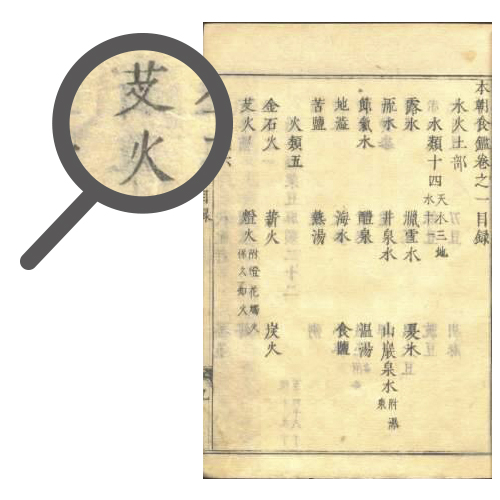 艾火
本朝食鑑卷之一目録
水火土部
水類十四 天水三地水十一
露水 臘雪水 夏氷
井泉水 山巖泉水 附瀑泉
節氣水 醴泉 温湯
海水 食鹽
苦鹽 熱湯
火類五
金石火 薪火 炭火
艾火 燈火 附燈花燭火